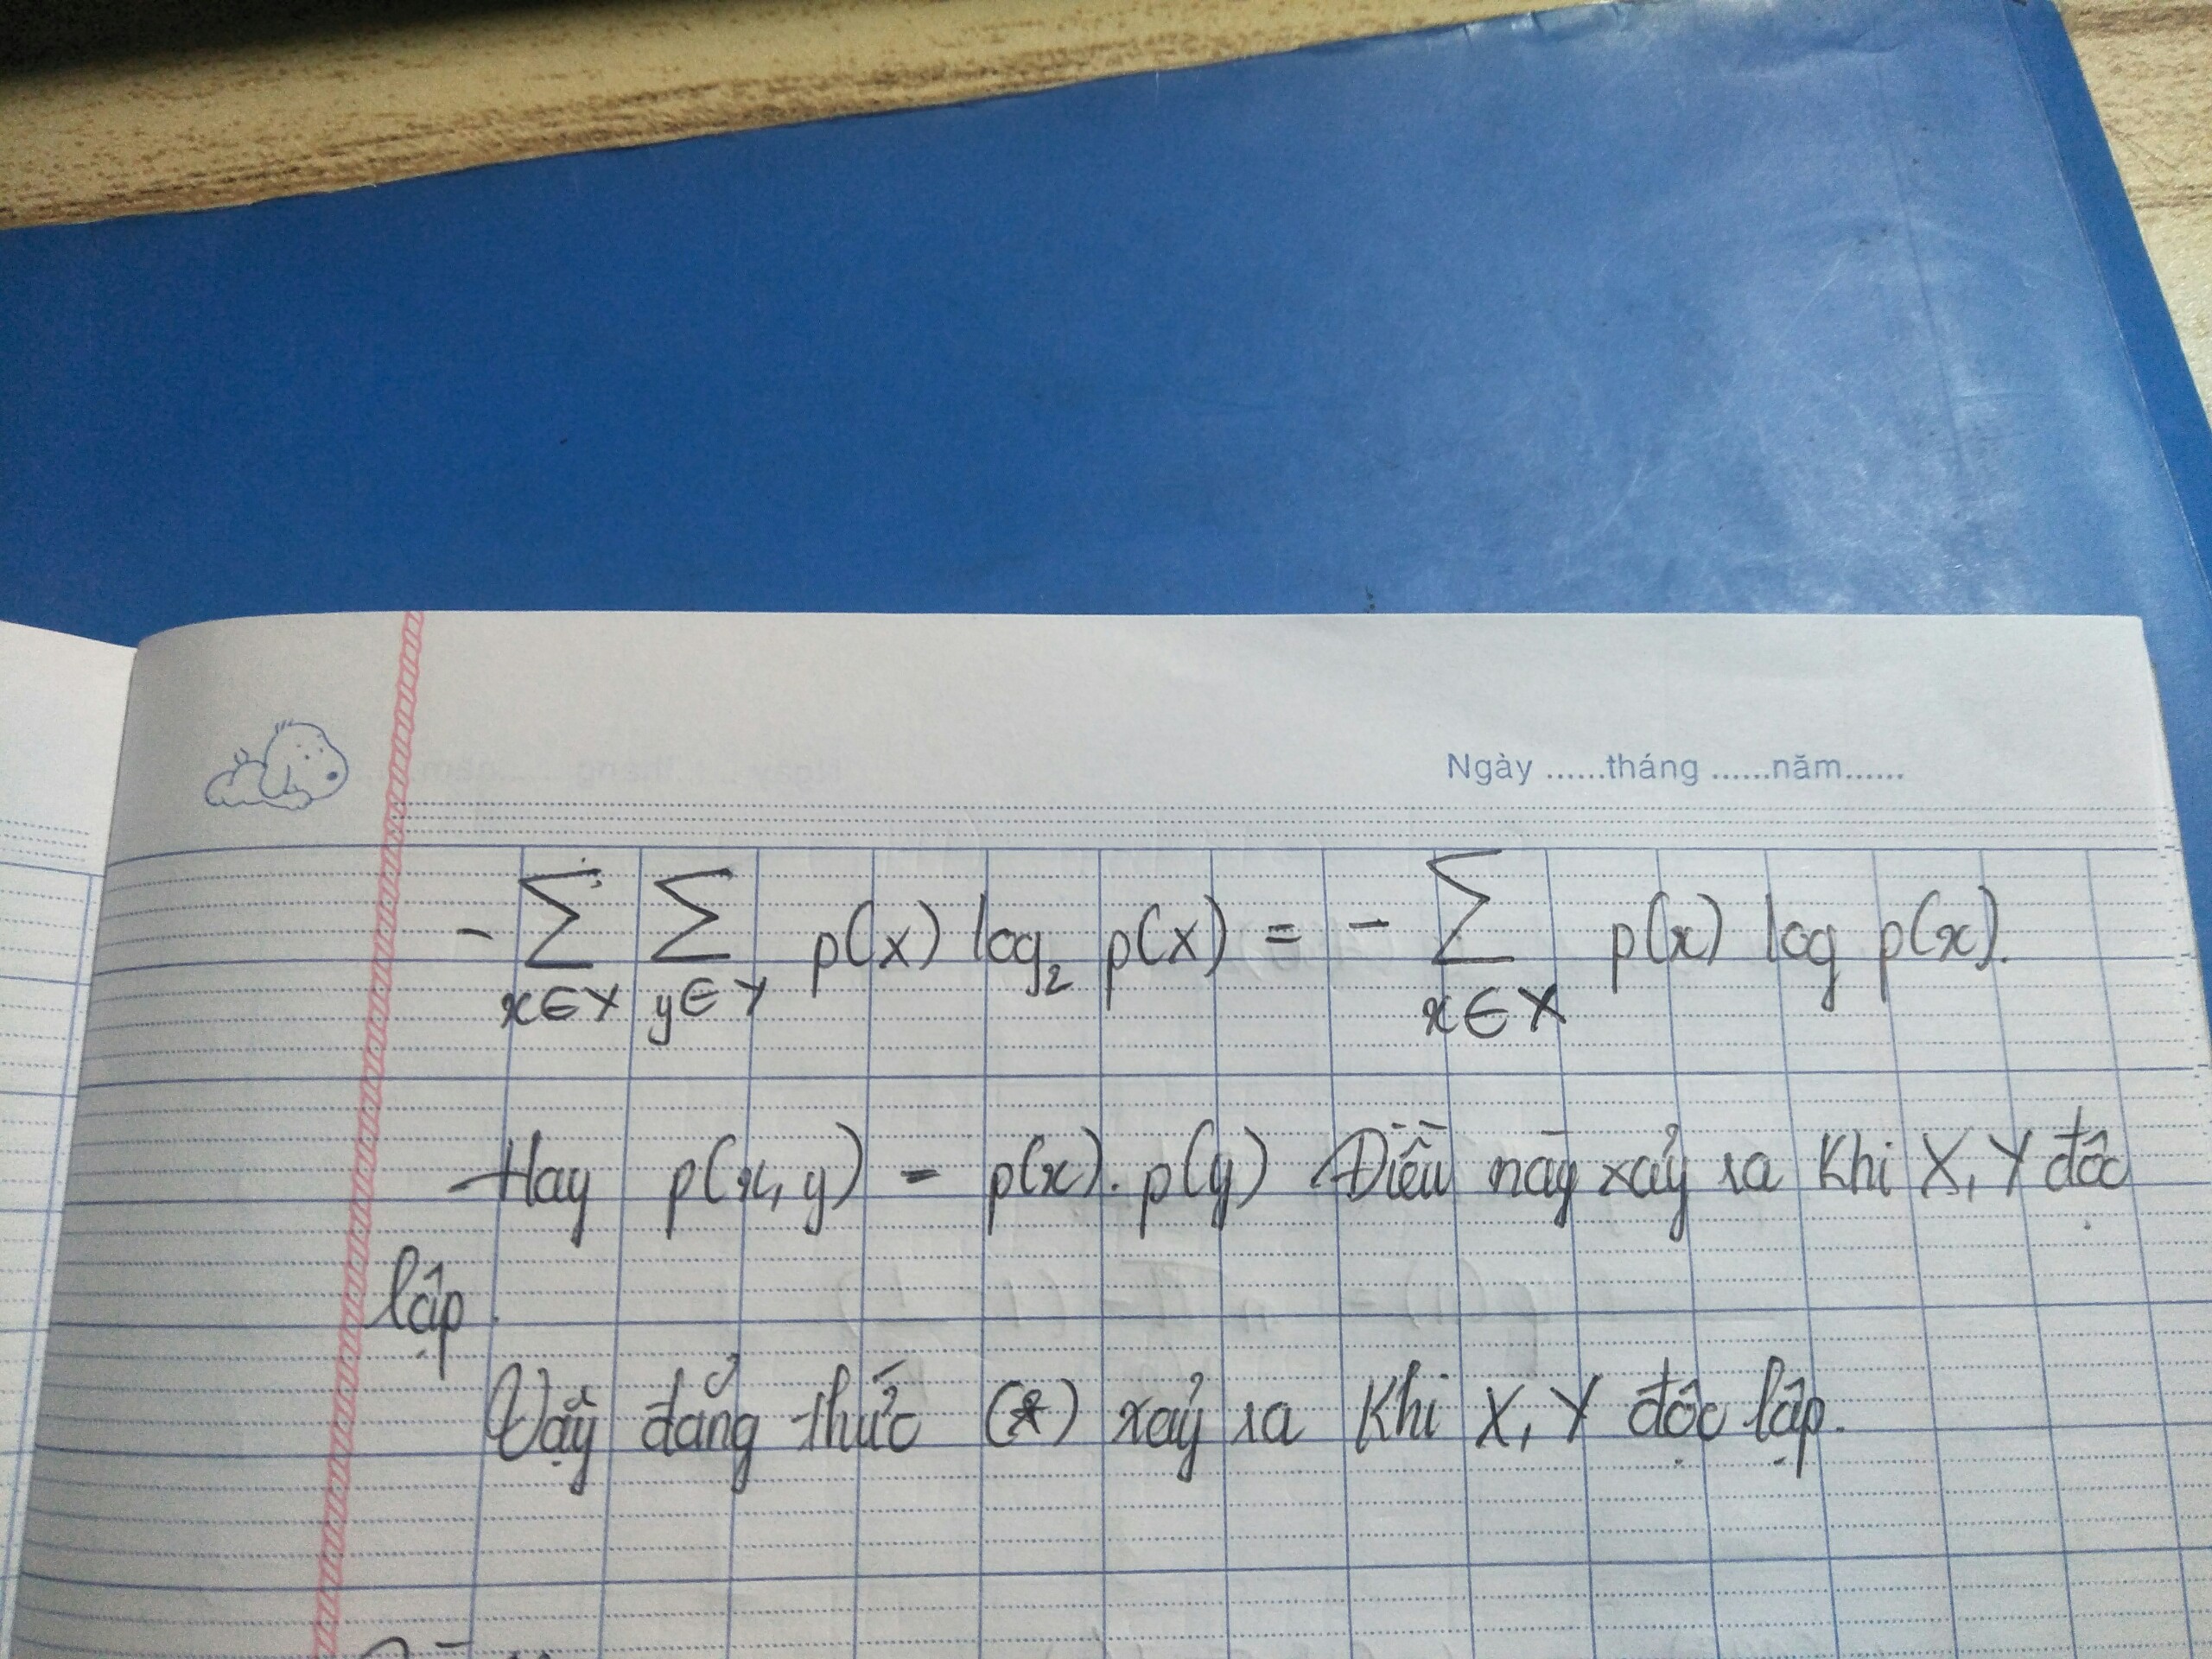 Ngày ......tháng ......năm......
- ∑ x∈Y ∑ y∈Y p(x) log₂ p(x) = - ∑ x∈X p(x) log p(x).
Hay p(x,y) = p(x). p(y) Điều này xảy ra khi X, Y độc
lập.
Vậy đẳng thức (*) xảy ra khi X, Y độc lập.